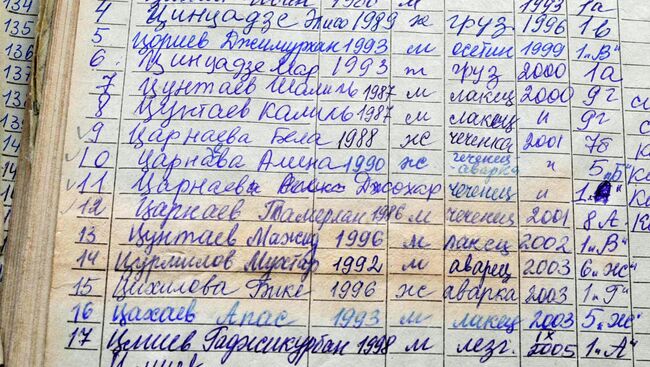 4 Цинцадзе Элисо 1989 ж груз 1996 1в
5 Цориев Джимурхан 1993 м осетин 1999 1"В"
6. Цинцадзе 1993 ж груз 2000 1а
7 Цунтаев Шамиль 1987 м лакец 2000 9г
8 Цунтаев Камиль 1987 м лакец и 9г
9 Царнаева Бела 1988 ж чеченка 2001 7б
10 Царнаева Алина 1990 ж чеченец-аварка и 5"Б"
11 Царнаев Джохар чеченец и 1"
12 Царнаев Тамерлан 1986 м чеченец 2001 8А
13 Цунтаев Мажид 1996 м лакец 2002 1"В"
14 Цурмилов Мухтар 1992 м аварец 2003 6"ж"
15 Цихилова Бике 1996 ж аварка 2003 1"Г"
16 Цахаев Апас 1993 м лакец 2003 5"Ж"
17 Цмиев Гаджикурбан 1998 м лезг. IX 2005 1"А"